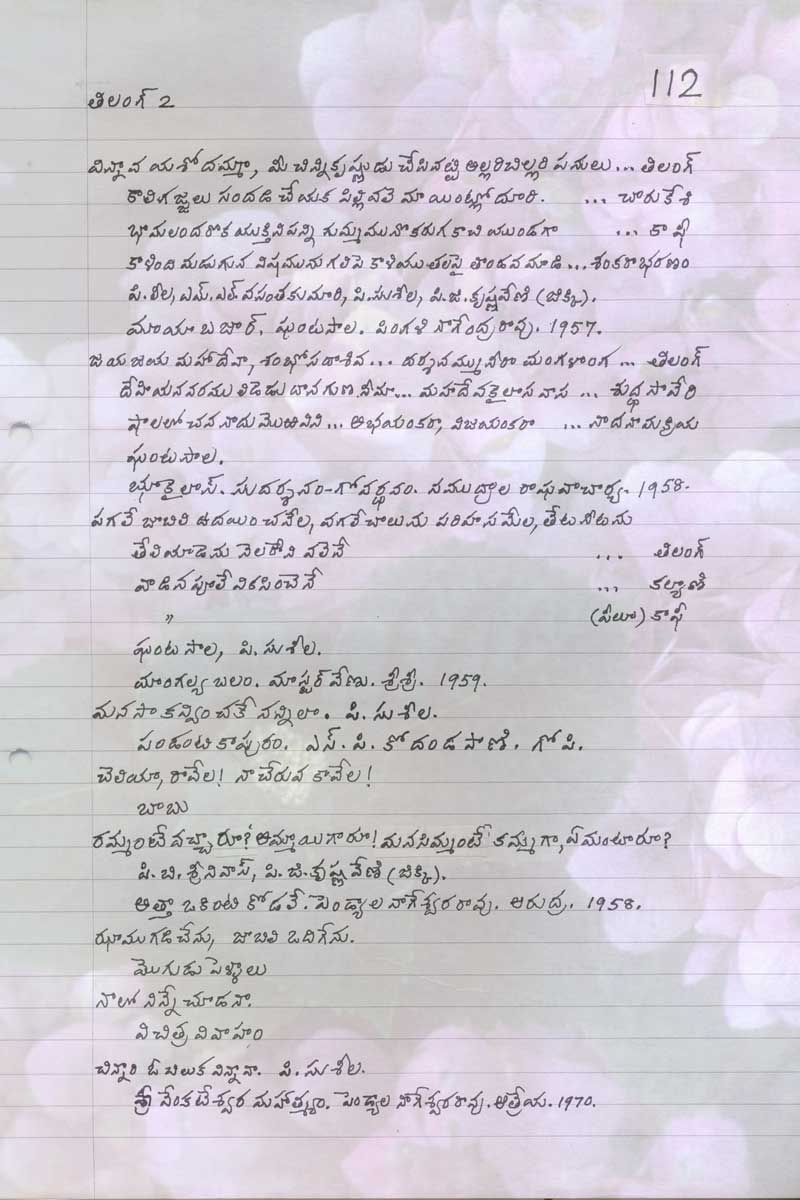 112
తిలంగ్ 2
విన్నావ యశోదమ్మా, మీ చిన్నికృష్ణుడు చేసినట్టి అల్లరిచిల్లరి పనులు... తిలంగ్
కాలిగజ్జలు సందడి చేయక పిల్లివలె మా యింట్లో దూరి. ... చారుకేశి
భామలందరొక యుక్తిని పన్ని గుమ్మమునొకరుగ కాచి యుండగా ... కాఫీ
కాళింది మడుగున విషమును గలిపె కాళియు తలపై తాండవమాడి... శంకరాభరణం
పి. లీల, ఎమ్. ఎల్. వసంతకుమారి, పి. సుశీల, పి. జి. కృష్ణవేణి (జిక్కి).
మాయా బజార్. ఘంటసాల. పింగళి నాగేంద్రరావు. 1957.
జయజయ మహాదేవా, శంభోసదాశివ... దర్శనమ్ము నీరా మంగళాంగ... తిలంగ్
దేహియనవరము లిడెడు దానగుణసీమా... మహాదేవకైలాసవాస ... శుద్ధ సావేరి
ఫాలలోచన నాదు మొఱవిని... అభయంకరా, విజయంకరా ... నాదనామక్రియ
ఘంటసాల.
భూకైలాస్. సుదర్శనం-గోవర్ధనం. సముద్రాల రాఘవాచార్య. 1958.
పగలే జాబిలి ఉదయించనేల, వగలేచాలును పరిహాసమేల, తేటనీటను
తేలియాడెను నెలరేని వలెనే ... తిలంగ్
వాడిన పూలే వికసించెనే ... కల్యాణి
" (పీలూ) కాఫీ
ఘంటసాల, పి. సుశీల.
మాంగల్య బలం. మాస్టర్ వేణు. శ్రీశ్రీ. 1959.
మనసా కవ్వించకే నన్నిలా. పి. సుశీల.
పండంటి కాపురం. ఎస్. పి. కోదండపాణి. గోపి.
చెలియా, రావేల! నా చేరువ కావేల!
బాబు
రమ్మంటే వచ్చారూ? అమ్మాయిగారూ! మనసిమ్మంటే కమ్మగా, ఏమంటారూ?
పి. బి. శ్రీనివాస్, పి. జి. కృష్ణవేణి (జిక్కి).
అత్తా ఒకింటి కోడలే. పెండ్యాల నాగేశ్వరరావు. ఆరుద్ర. 1958.
ఝాము గడిచేను, జాబిలి ఒదిగేను.
మొగుడు పెళ్ళాలు
నాలో నిన్నే చూడనా.
విచిత్ర వివాహం
చిన్నారి ఓ చిలుక విన్నావా. పి. సుశీల.
శ్రీ వేంకటేశ్వర మహాత్మ్యం. పెండ్యాల నాగేశ్వరరావు. ఆత్రేయ. 1970.